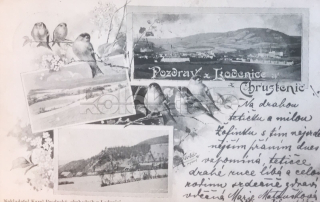 Pozdrav z Loděnice
a
Chrustenic
Na drahou
tetičku a milou
Žofinku s tím nejsrd
nejším přáním dnes
vzpomíná, tetičce
drahé ruce líbá a celou
rodinu srdečně zdraví
vděčná Marie